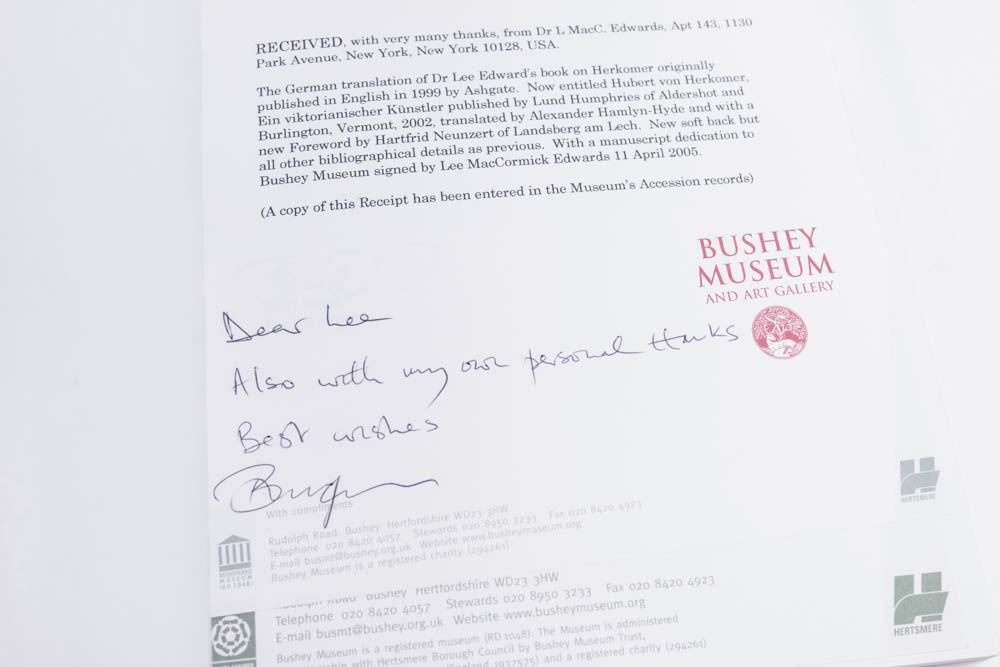 RECEIVED, with very many thanks, from Dr L MacC. Edwards, Apt 143, 1130
Park Avenue, New York, New York 10128, USA.
The German translation of Dr Lee Edward's book on Herkomer originally
published in English in 1999 by Ashgate. Now entitled Hubert von Herkomer,
Ein viktorianischer Künstler published by Lund Humphries of Aldershot and
Burlington, Vermont, 2002, translated by Alexander Hamlyn-Hyde and with a
new Foreword by Hartfrid Neunzert of Landsberg am Lech. New soft back but
all other bibliographical details as previous. With a manuscript dedication to
Bushey Museum signed by Lee MacCormick Edwards 11 April 2005.
(A copy of this Receipt has been entered in the Museum's Accession records)
BUSHEY
MUSEUM
AND ART GALLERY
Dear Lee
Also with my own personal thanks
Best wishes
With compliments
Rudolph Road Bushey Hertfordshire WD23 3HW
Telephone 020 8420 4057 Stewards 020 8950 3233 Fax 020 8420 4923
E-mail busmt@bushey.org.uk Website www.busheymuseum.org
Bushey Museum is a registered charity (294261)
REGISTERED
MUSEUM
(RD 1048)
HERTSMERE
Bushey Hertfordshire WD23 3HW
Telephone 020 8420 4057 Stewards 020 8950 3233 Fax 020 8420 4923
E-mail busmt@bushey.org.uk Website www.busheymuseum.org
Bushey Museum is a registered museum (RD 1048). The Museum is administered
with Hertsmere Borough Council by Bushey Museum Trust,
1937575) and a registered charity (294261)
HERTSMERE